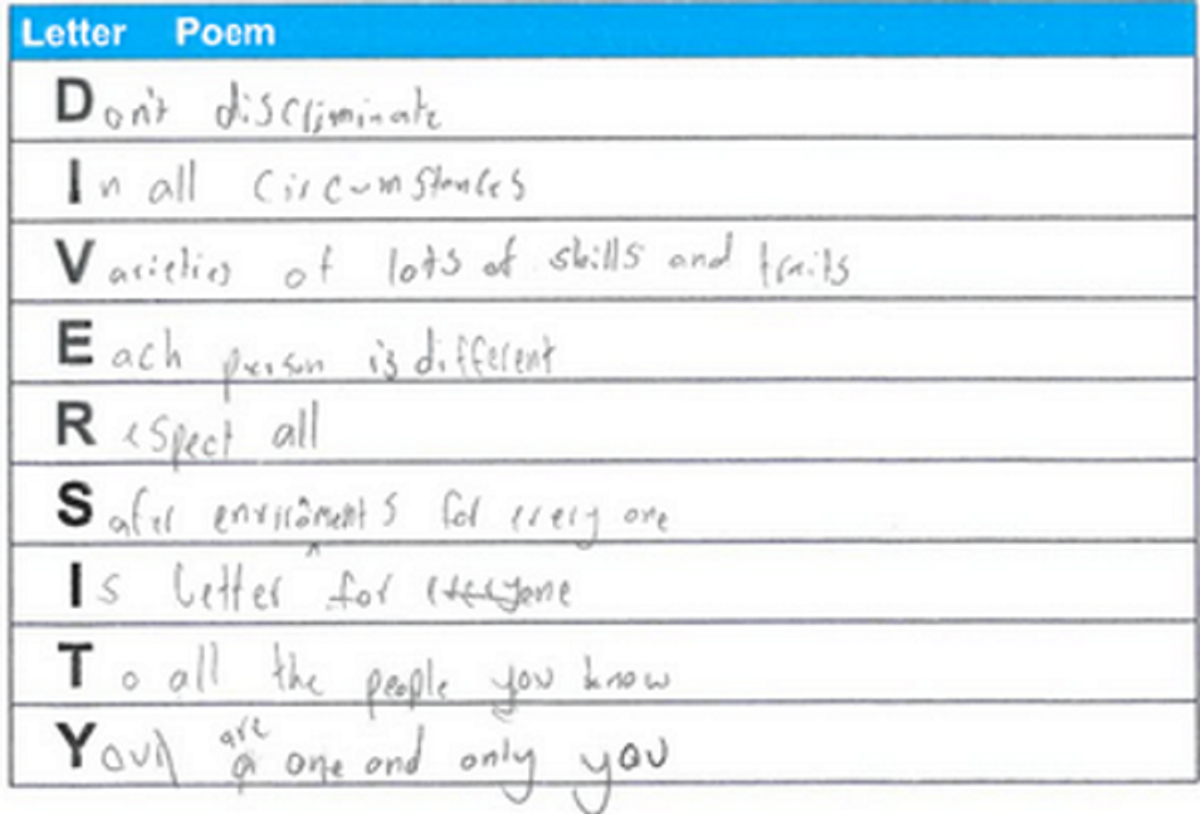 Letter Poem
Don't discriminate
In all circumstances
Varieties of lots of skills and traits
Each person is different
Respect all
Safer enviroments for every one
Is better for everyone
To all the people you know
You are a one and only you